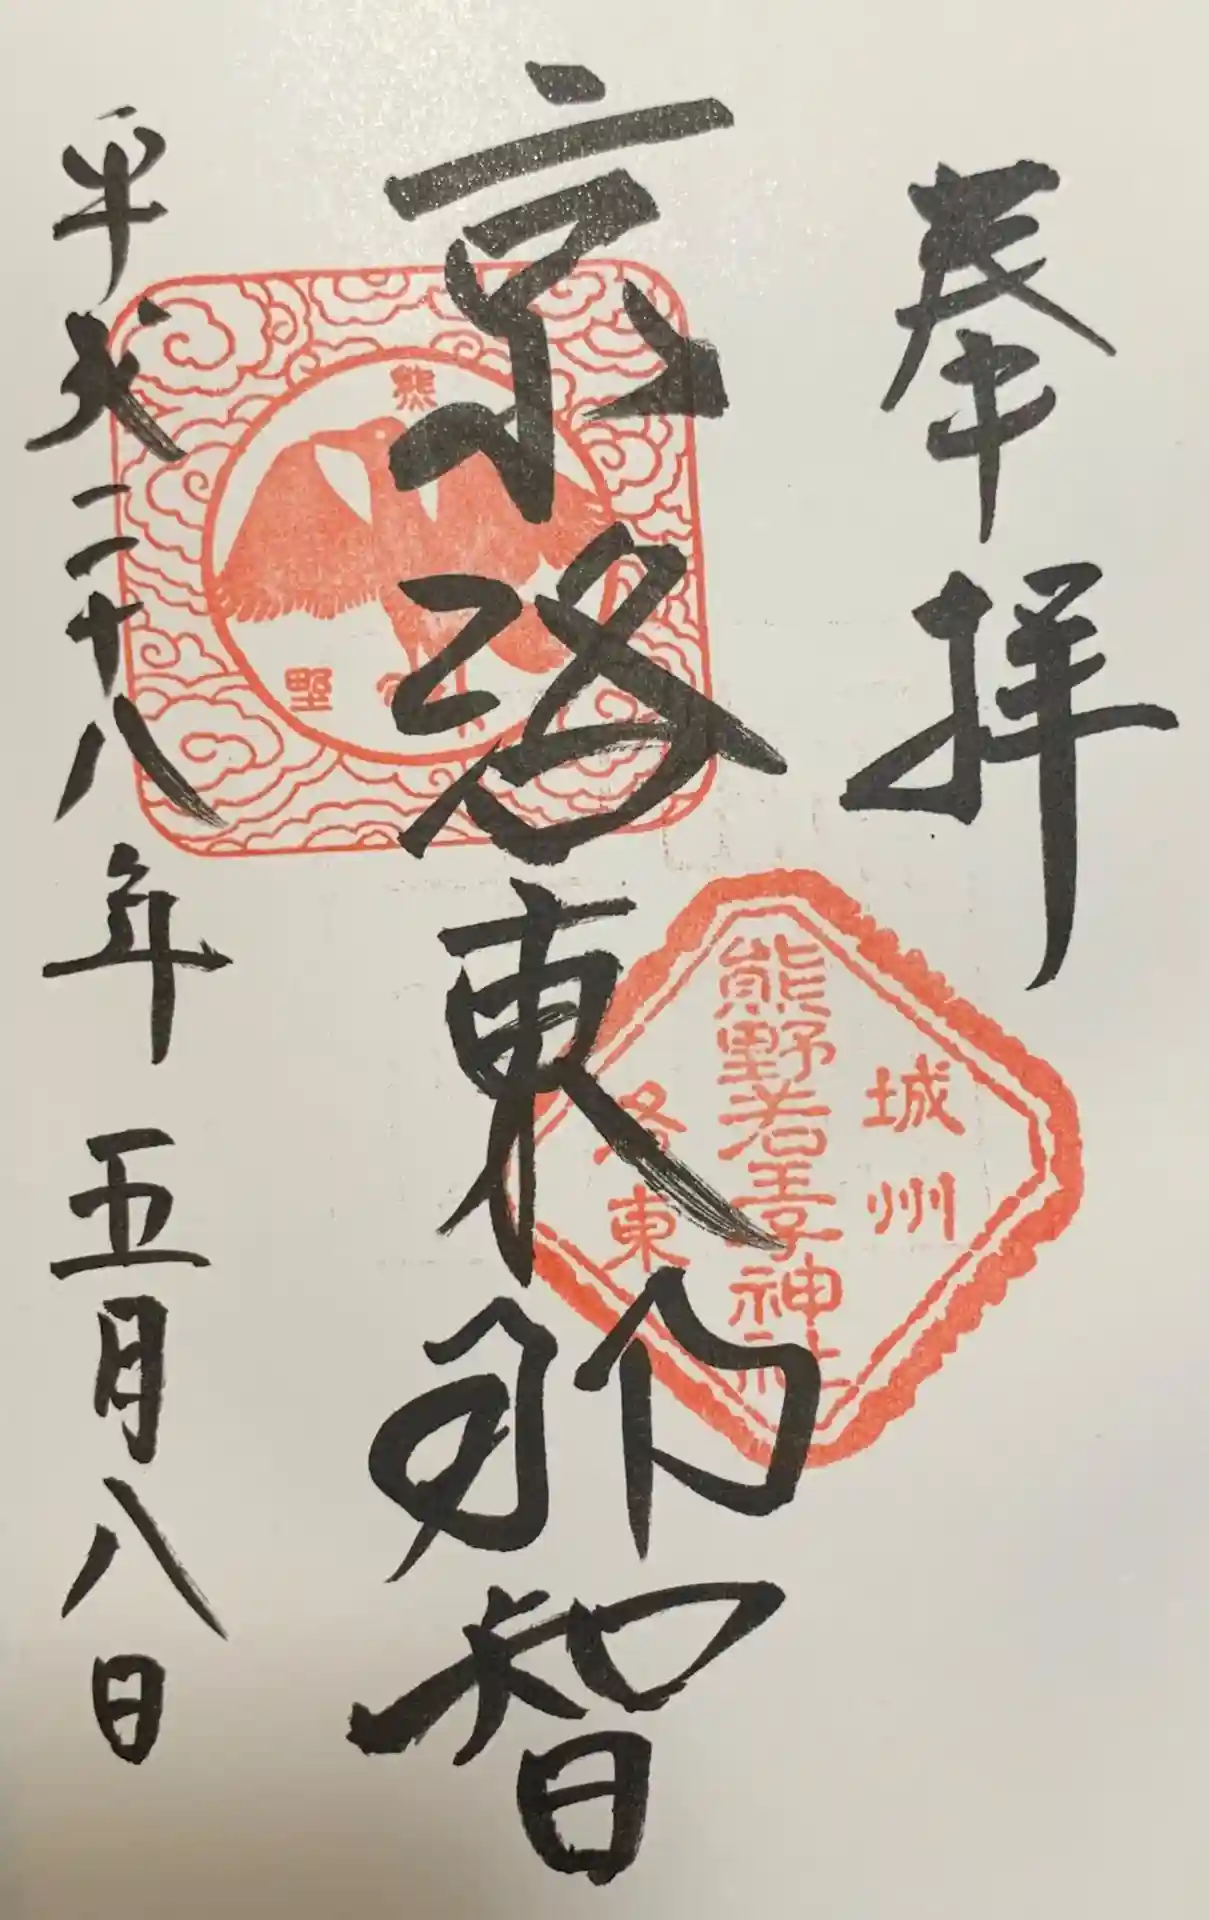 奉拝
城州
熊野若王子神社
洛東
京洛東那智
熊
野
平成二十八年五月八日